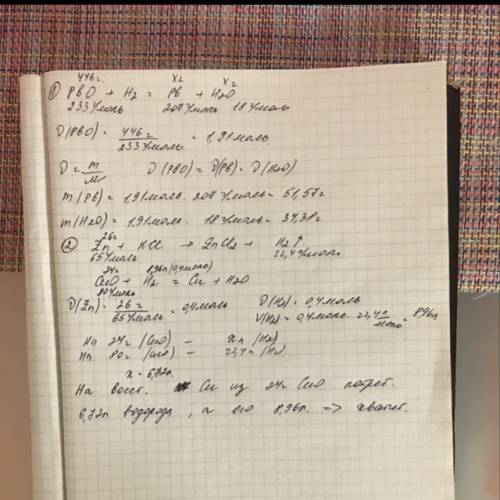 446г. хг хг
① PbO + H₂ = Pb + H₂O
233г/моль 207г/моль 18г/моль
ν(PbO) = 446г / 233г/моль = 1,91моль
ν = m/Mr ν(PbO) = ν(Pb) = ν(H₂O)
m(Pb) = 1,91моль · 207г/моль = 51,57г
m(H₂O) = 1,91моль · 18г/моль = 34,38г
26г
② Zn + HCl → ZnCl₂ + H₂↑
65г/моль 22,4л/моль
24г 8,96л (0,4моль)
CuO + H₂ = Cu + H₂O
80г/моль
ν(Zn) = 26г / 65г/моль = 0,4моль ν(H₂) = 0,4моль
V(H₂) = 0,4моль · 22,4л/моль = 8,96л
На 24г (CuO) – хл (H₂)
На 80г (CuO) – 22,4л (H₂)
х = 6,72л.
На восст. Cu из 24г CuO потреб.
6,72л водорода, а его 8,96л. => хватит.